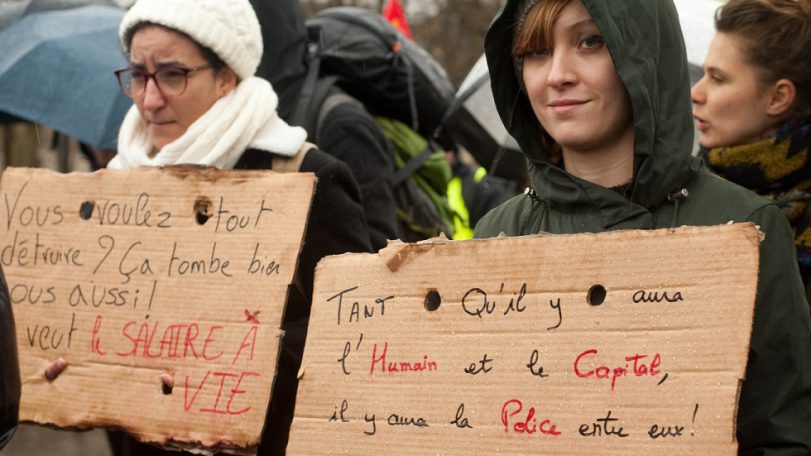 Vous voulez tout
détruire ? Ça tombe bien
ous aussi!
veut le SALAIRE À
VIE
TANT Qu'il y aura
l'Humain et le Capital,
il y aura la Police entre eux!